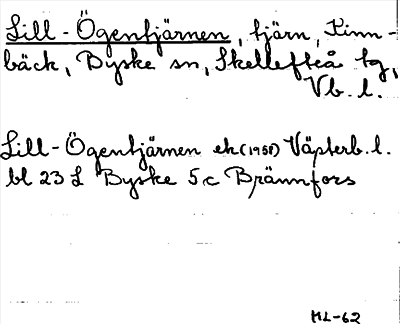 Lill-Ögentjärnen, tjärn, Kinn-
bäck, Byske sn, Skellefteå tg,
Vb. l.
Lill-Ögentjärnen ek (1958) Västerb. l.
bl 23 L Byske 5c Brännfors
ML-62